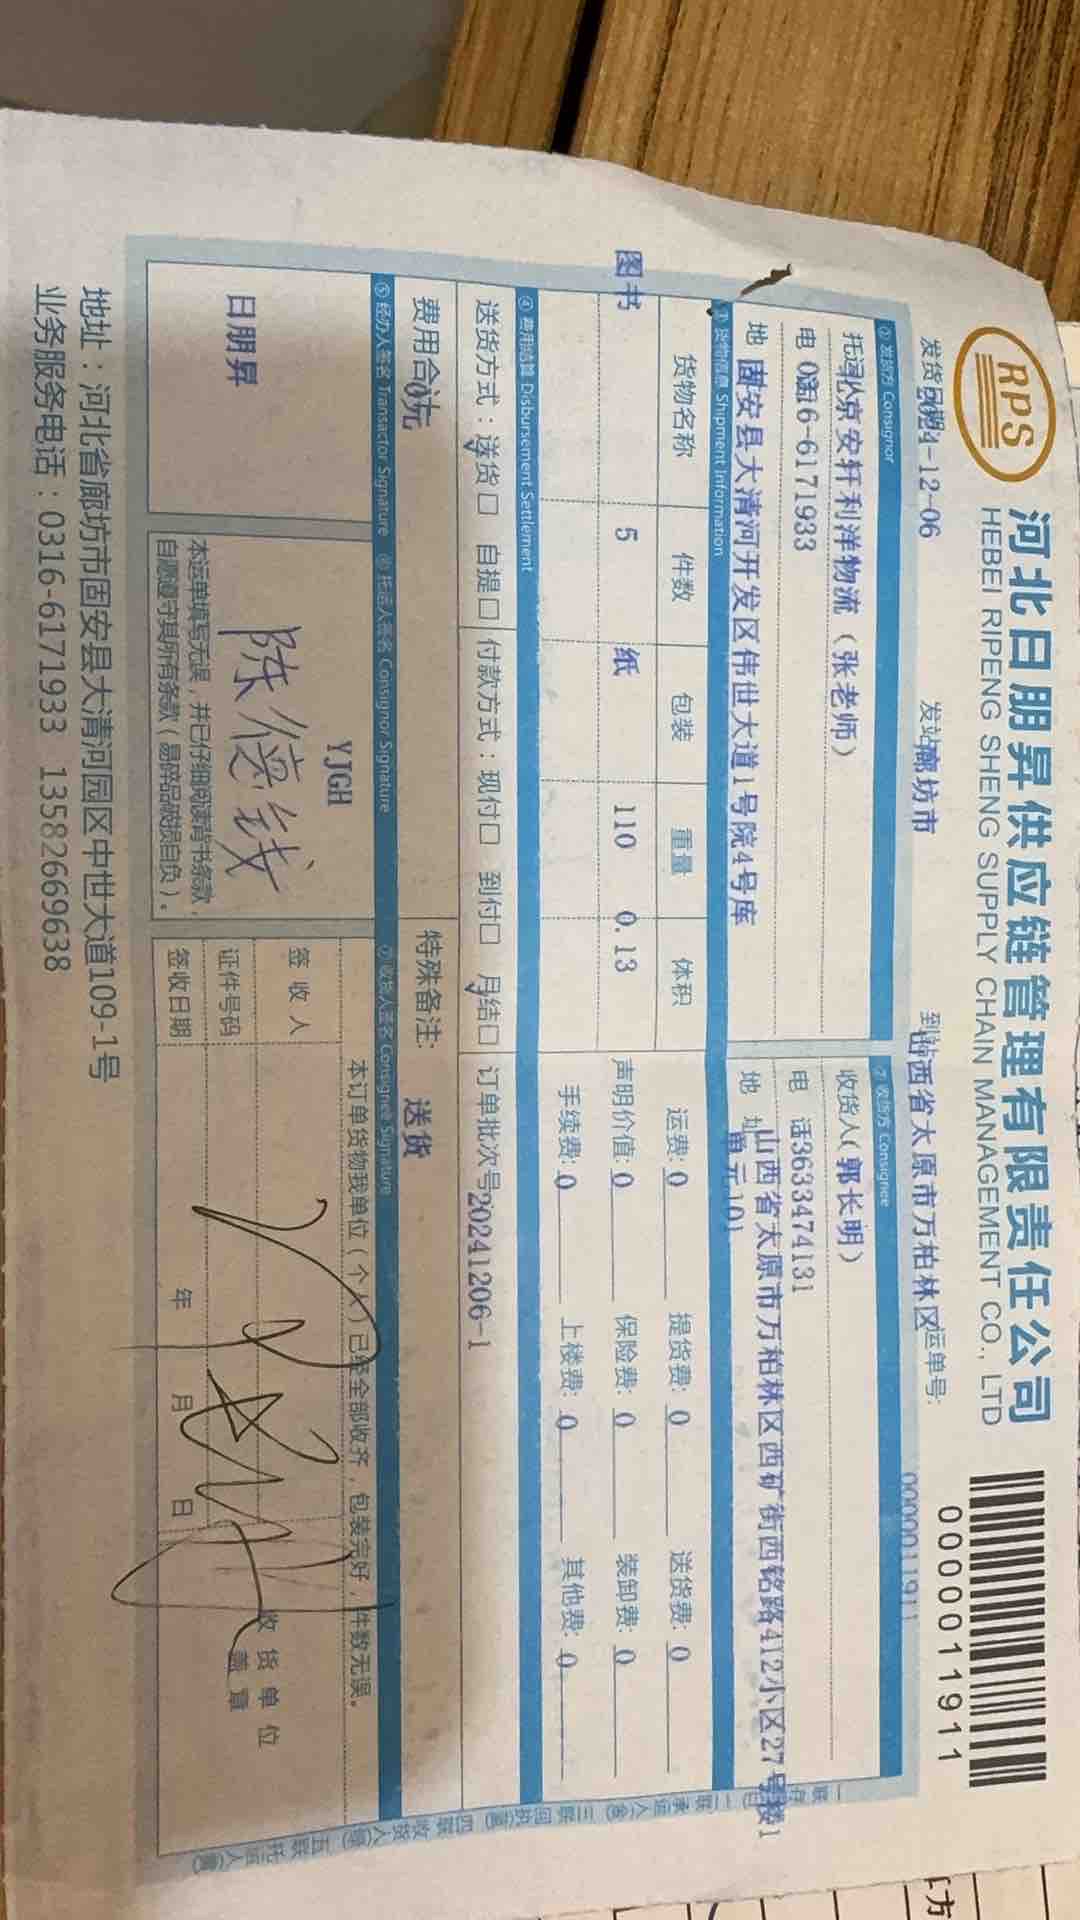 RPS
河北日朋昇供应链管理有限责任公司
HEBEI RIPENG SHENG SUPPLY CHAIN MANAGEMENT CO., LTD
0000011911
发货日期 2024-12-06 发站 廊坊市 到站 山西省太原市万柏林区 运单号: 0000011911
① 发货方 Consignor
托运人 北京安轩利洋物流（张老师）
电话 0316-6171933
地 固安县大清河开发区伟世大道1号院4号库
② 收货方 Consignee
收货人（郭长明）
电 话 3633474131
地 址 山西省太原市万柏林区西矿街西铭路412小区27号楼1
单元101
③ 货物信息 Shipment Information
货物名称 件数 包装 重量 体积
图书 5 纸 110 0.13
运费: 0 提货费: 0 送货费: 0
声明价值: 0 保险费: 0 装卸费: 0
手续费: 0 上楼费: 0 其他费: 0
④ 费用结算 Disbursement Settlement
送货方式：送货☐ 自提☐ 付款方式：现付☐ 到付☐ 月结☐ 订单批次号 20241206-1
费用合计 0元 特殊备注: 送货
⑤ 经办人签名 Transactor Signature ⑥ 托运人签名 Consignor Signature ⑦ 收货人签名 Consignee Signature
日朋昇
YJGH
陈德钱
本运单填写无误，并已仔细阅读背书条款，
自愿遵守其所有条款（易碎品破损自负）。
本订单货物我单位（个人）已经全部收齐，包装完好，件数无误。
签收人
证件号码
签收日期 年 月 日
收货单位
盖章
地址：河北省廊坊市固安县大清河园区中世大道109-1号
业务服务电话：0316-6171933 13582669638